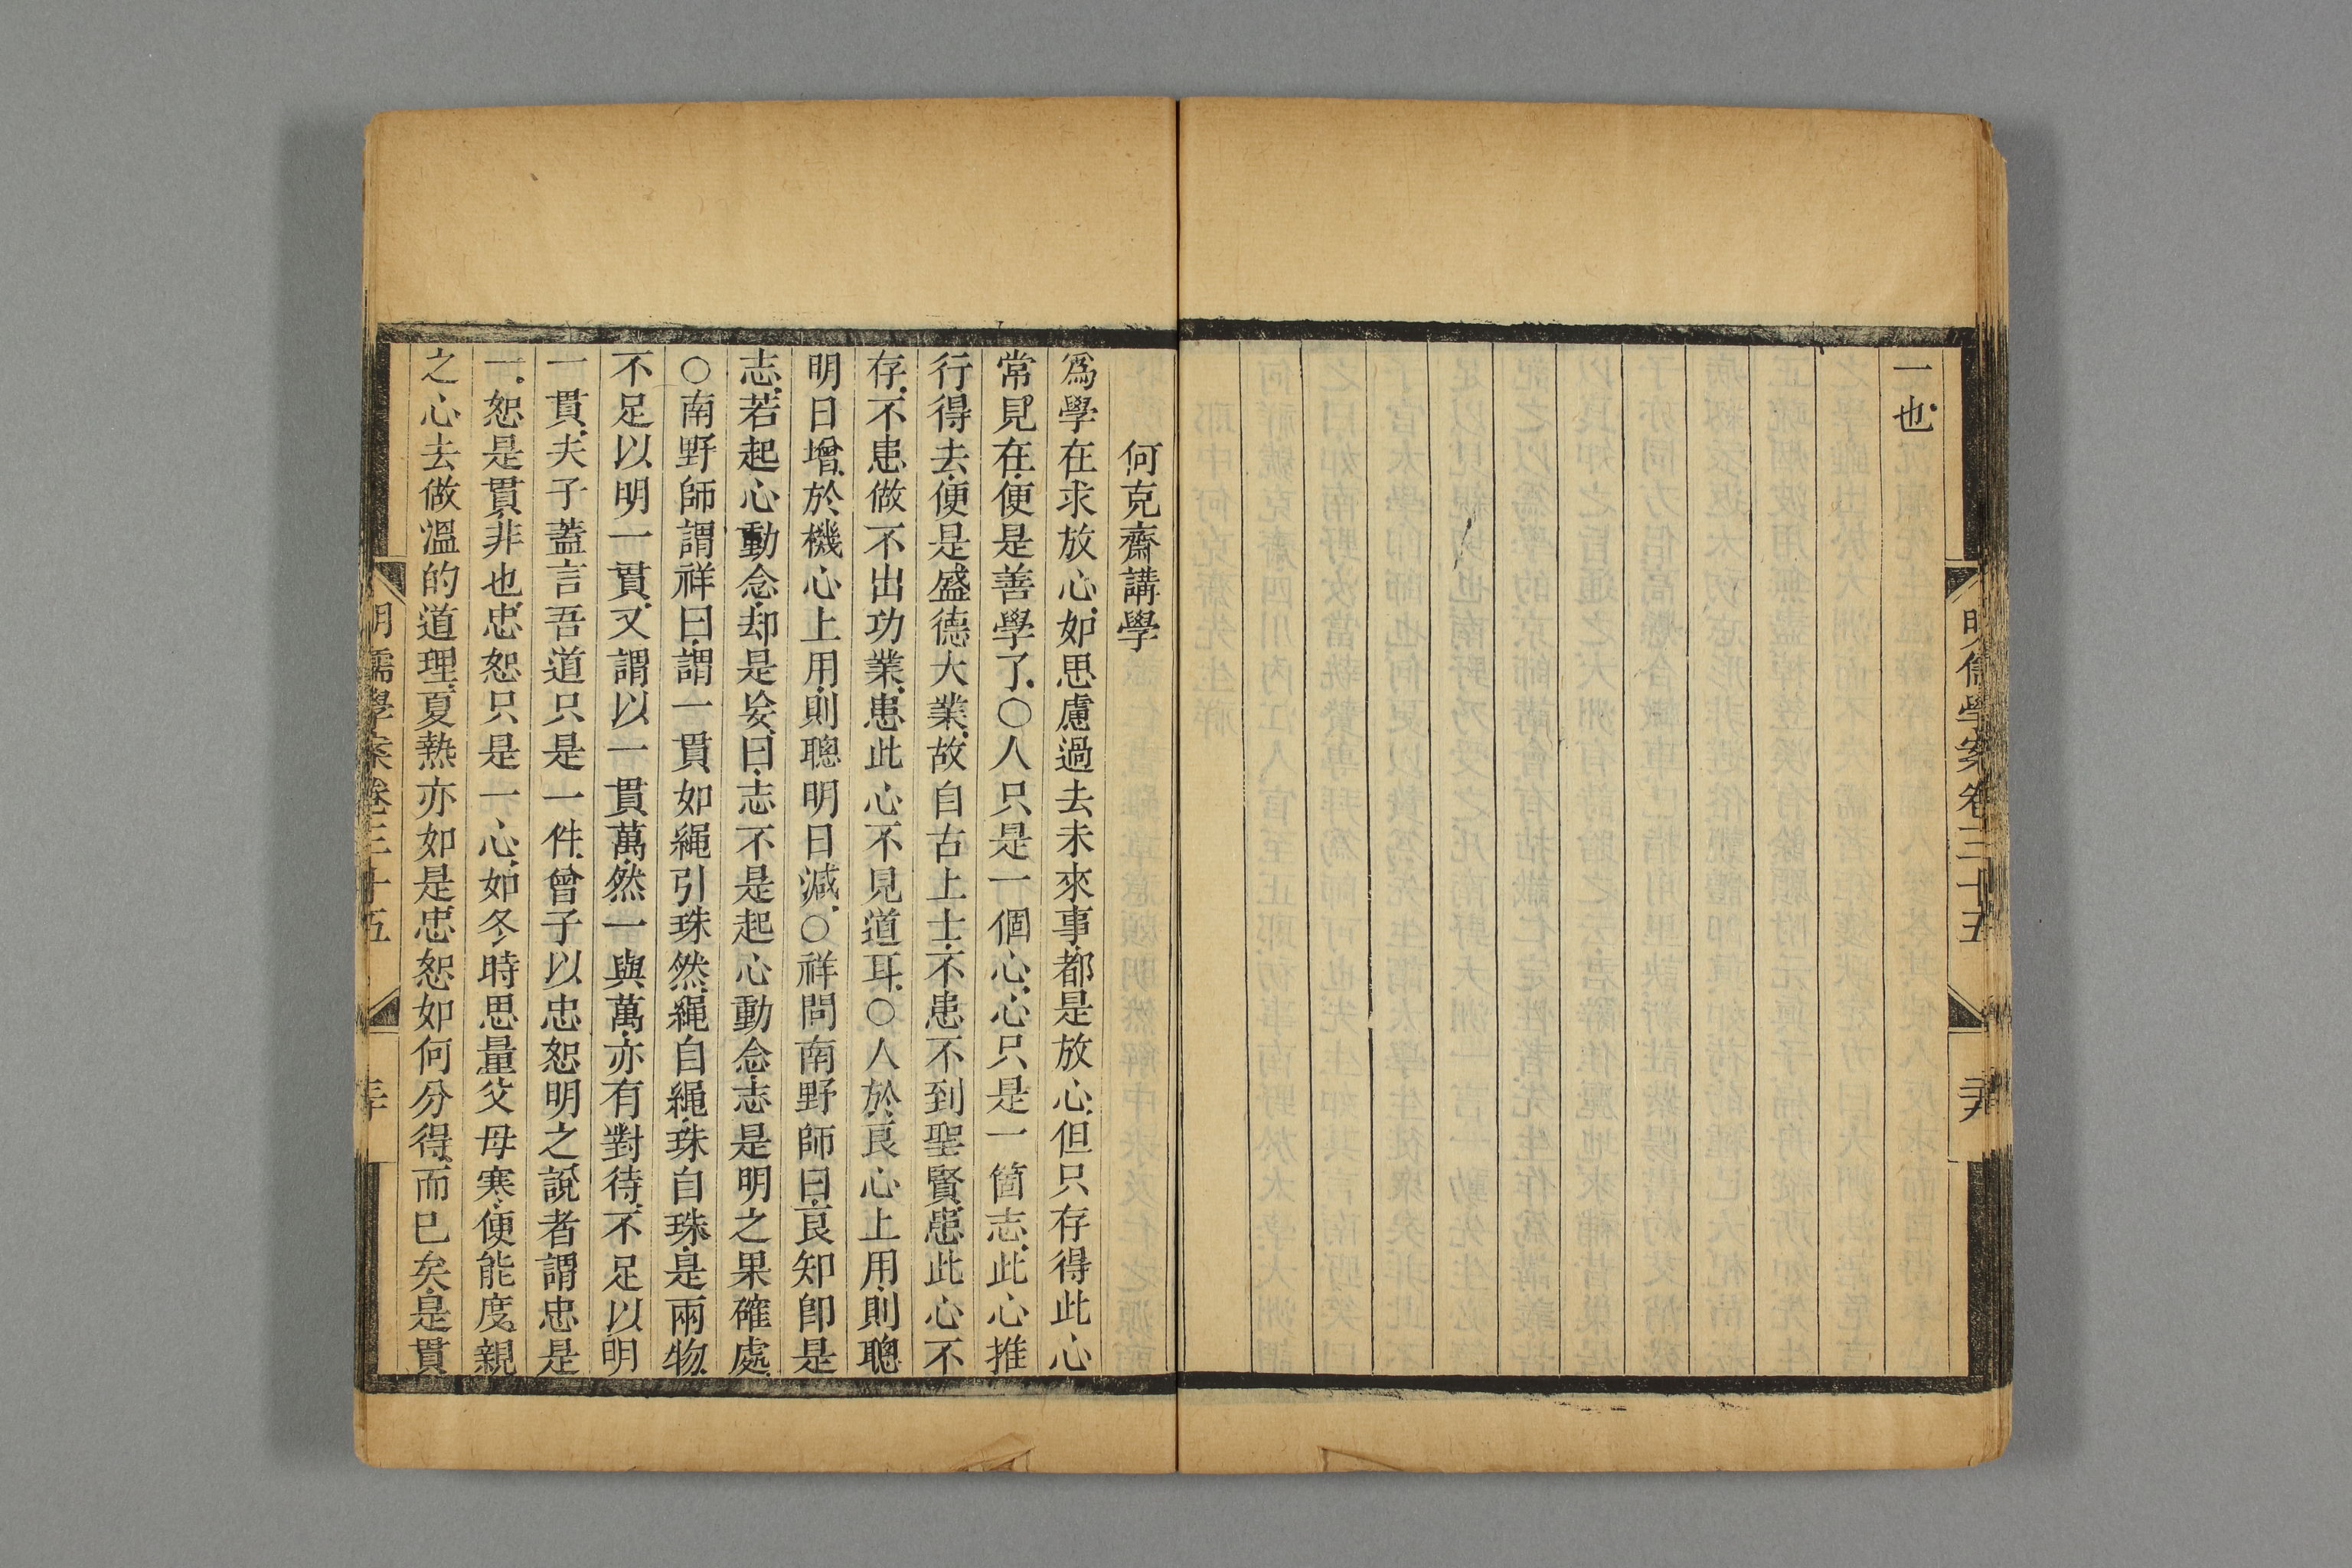 一也
明儒學案卷三十五
何克齋講學
爲學在求放心如思慮過去未來事都是放心但只存得此心
常見在便是善學了○人只是一個心心只是一箇志此心推
行得去便是盛德大業故自古上士不患不到聖賢患此心不
存不患做不出功業患此心不見道耳○人於良心上用則聰
明日增於機心上用則聰明日減○祥問南野師曰良知卽是
志若起心動念却是妄曰志不是起心動念志是明之果確處
○南野師謂祥曰謂一貫如繩引珠然繩自繩珠自珠是兩物
不足以明一貫又謂以一貫萬然一與萬亦有對待不足以明
一貫夫子蓋言吾道只是一件曾子以忠恕明之說者謂忠是
一恕是貫非也忠恕只是一心如冬時思量父母寒便能度親
之心去做溫的道理夏熱亦如是忠恕如何分得而已矣是貫
明儒學案卷三十五